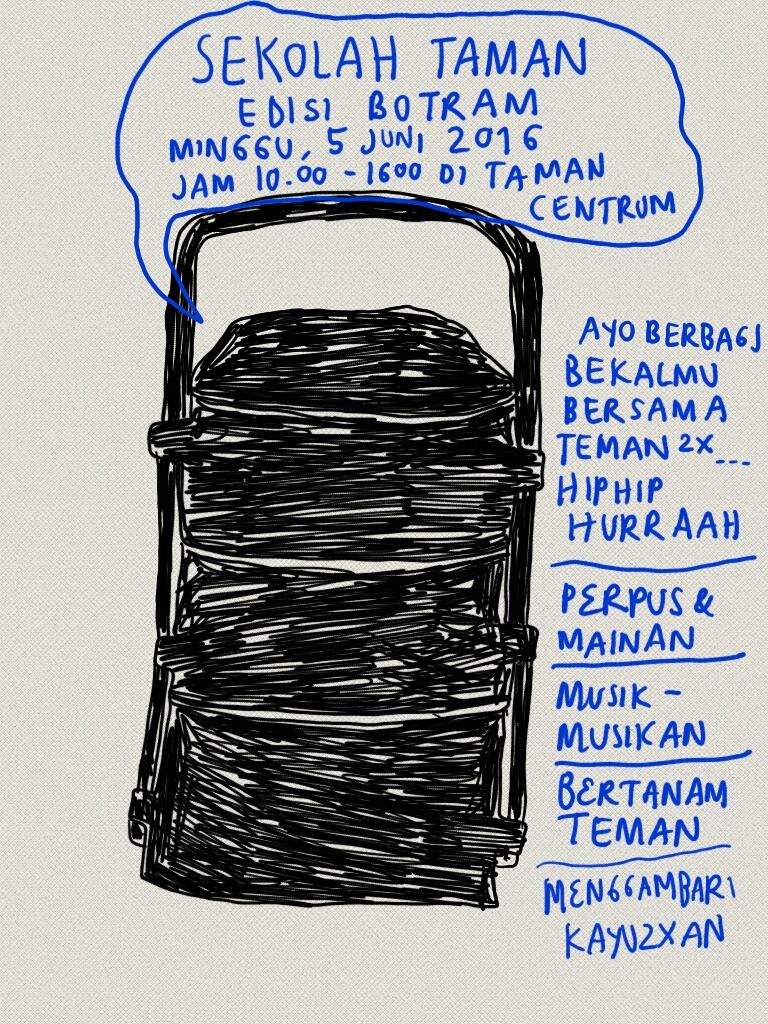 SEKOLAH TAMAN
EDISI BOTRAM
MINGGU, 5 JUNI 2016
JAM 10.00 - 1600 DI TAMAN
CENTRUM
AYO BERBAGI
BEKALMU
BERSAMA
TEMAN 2X...
HIPHIP
HURRAAH
PERPUS &
MAINAN
MUSIK -
MUSIKAN
BERTANAM
TEMAN
MENGGAMBARI
KAYU2XAN